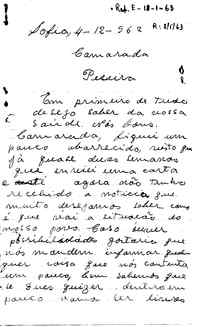 Ref. E-18-1-63
Sofia, 4-12-962
Camarada
Pereira
Em primeiro de tudo
desejo saber da vossa
Saúde nós bons.
Camarada, fiquei um
pouco aborrecido, visto que
já quase duas semanas
que enviei uma carta
e agora não tenho
recebido a noticia que
muito desejamos saber como
é que vai a situação do
nosso povo. Caso seiver
possibilidades gostaria que
nós mandem informar qual-
quer coisa que nós contenta
um pouco, bem sabemos que
se Deus quizer, dentro em
pouco vamos ser livres